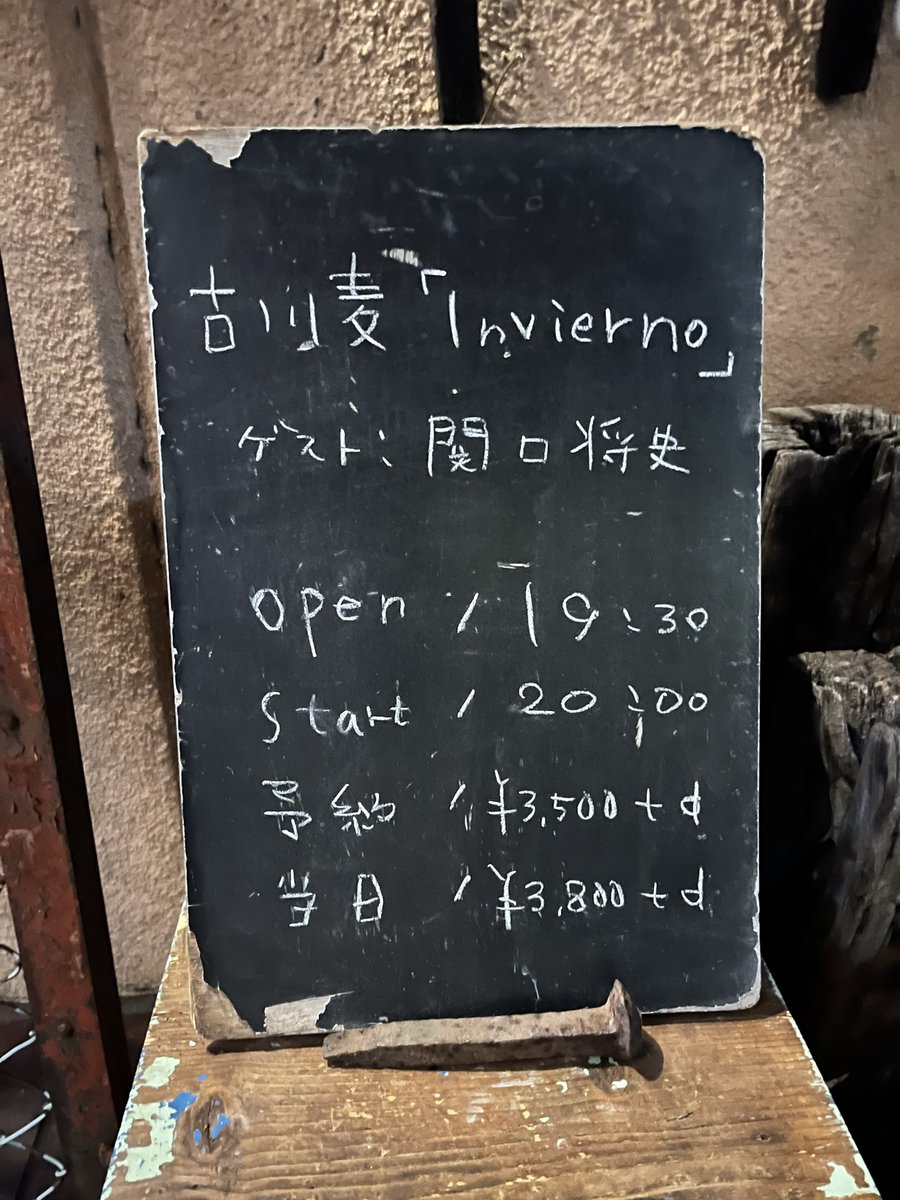 古川麦「Invierno」
ゲスト:関口将史
open / 19:30
start / 20:00
予約 / ¥3,500+d
当日 / ¥3,800+d